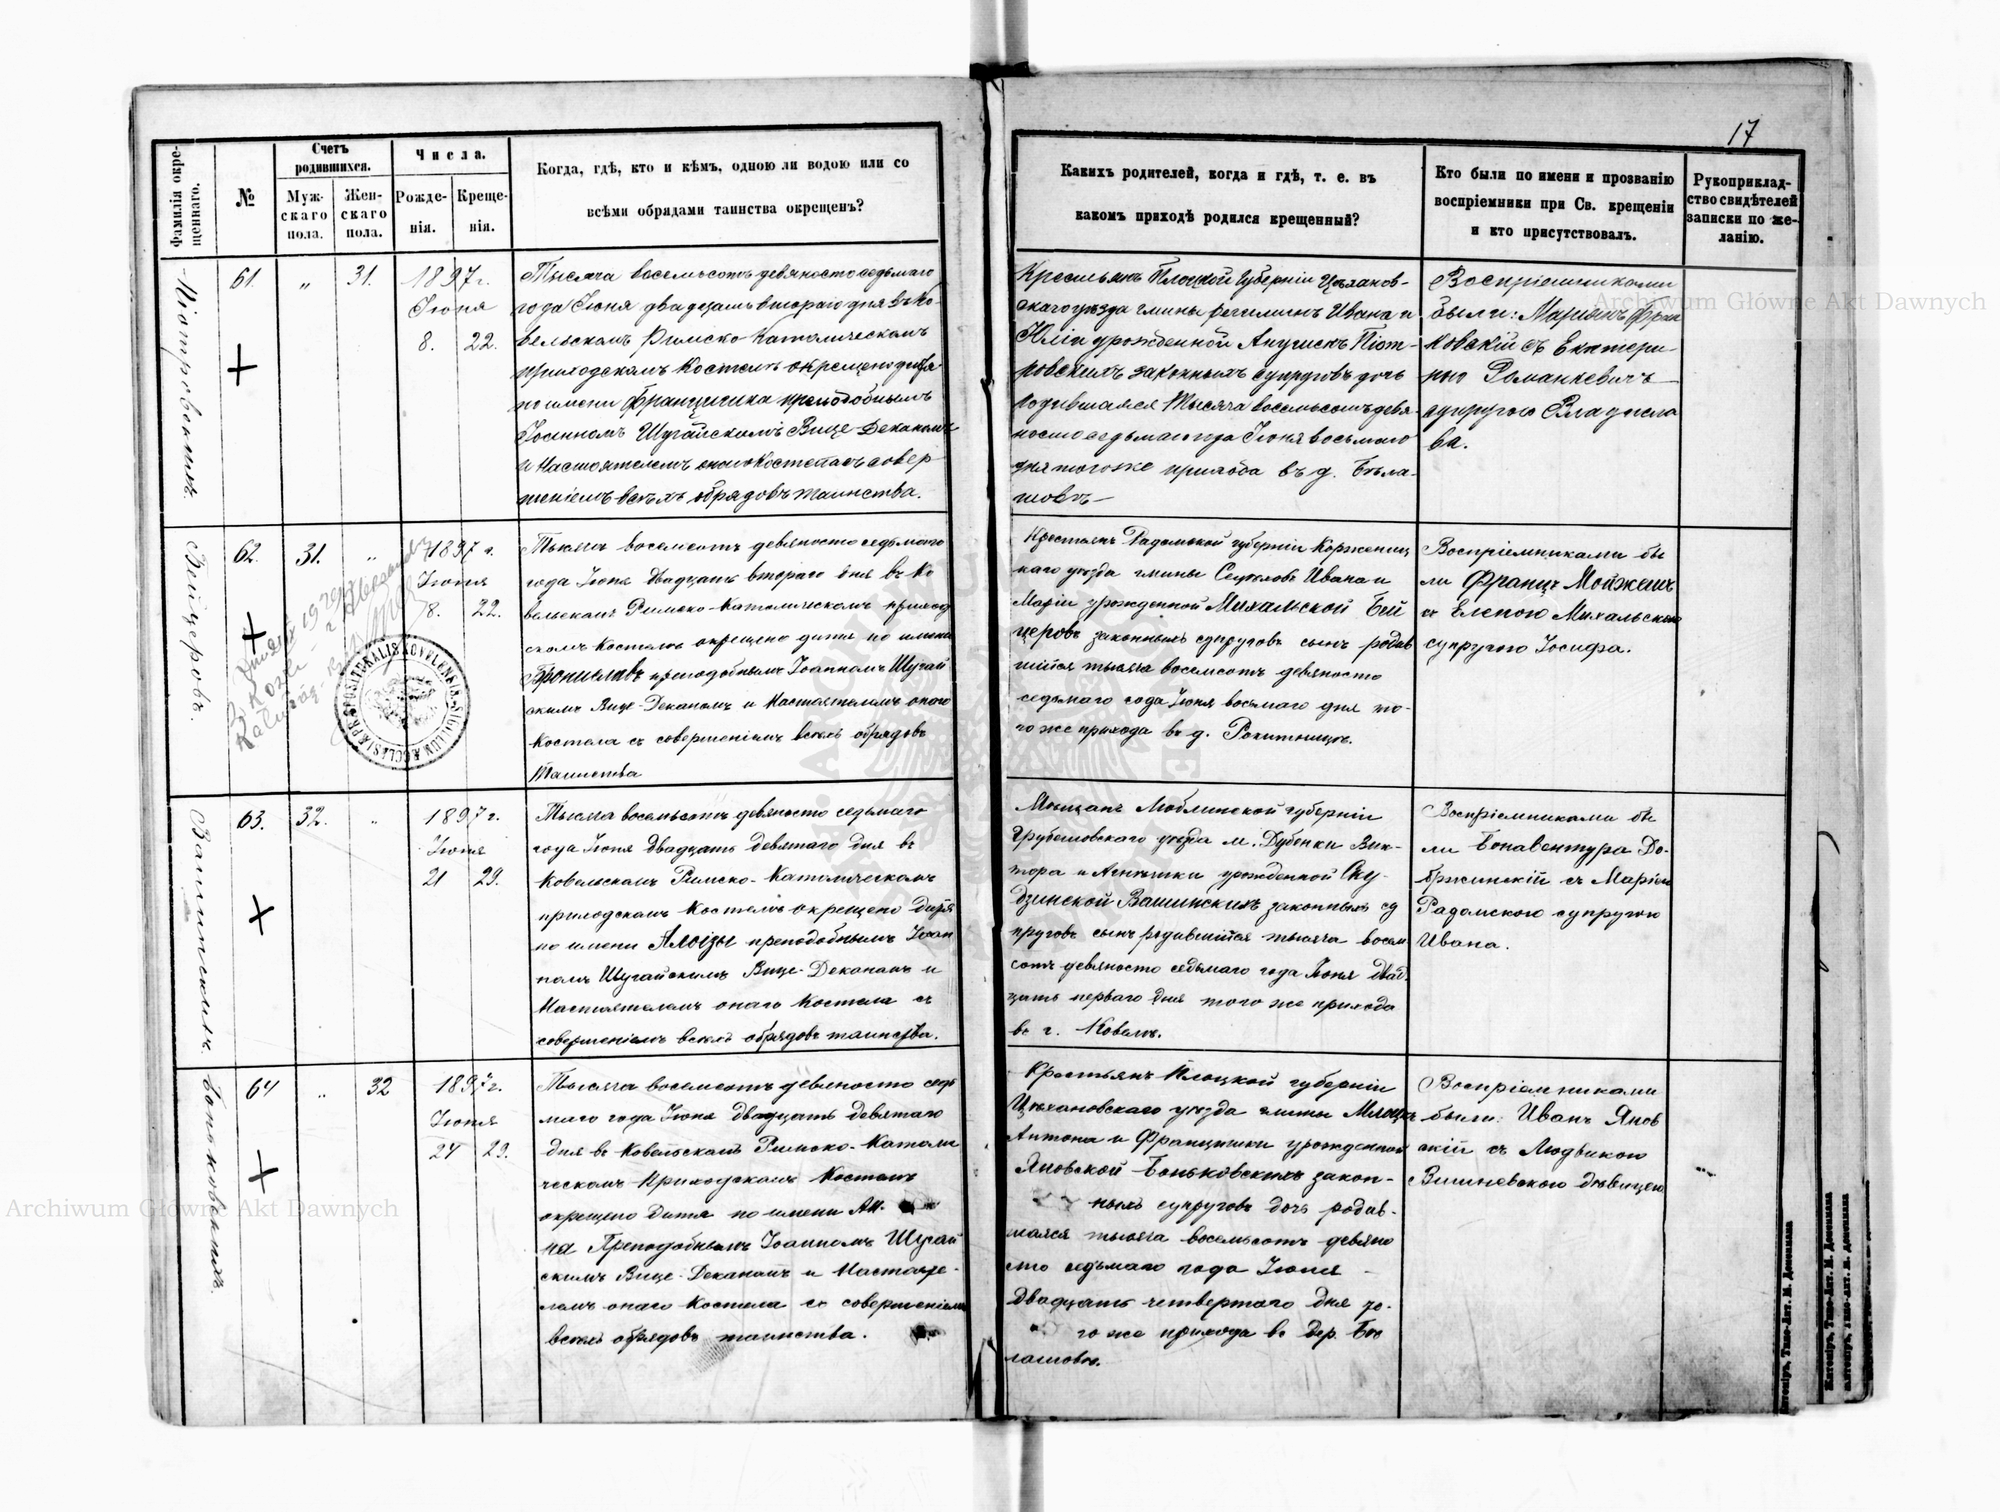 17
Фамилія окре-
щеннаго.
№
Счетъ
родившихся.
Муж-
скаго
пола.
Жен-
скаго
пола.
Числа.
Рожде-
нія.
Креще-
нія.
Когда, гдѣ, кто и кѣмъ, одною ли водою или со
всѣми обрядами таинства окрещенъ?
Какихъ родителей, когда и гдѣ, т. е. въ
какомъ приходѣ родился крещенный?
Кто были по имени и прозванію
воспріемники при Св. крещеніи
и кто присутствовалъ.
Рукоприклад-
ство свидѣтелей
записки по же-
ланію.
Піотровскихъ.
61.
„
31.
1897 г.
Іюня
8.
22.
Тысяча восемьсотъ девяносто седьмаго
года Іюня двадцать втораго дня въ Ко-
вельскомъ Римско-Католическомъ
приходскомъ Костелѣ окрещено дитя
по имени Францишка преподобнымъ
Іоанномъ Шугайскимъ Вице-Деканомъ
и Настоятелемъ онаго Костела съ совер-
шеніемъ всѣхъ обрядовъ таинства.
Крестьянъ Плоцкой Губерніи Цѣханов-
скаго уѣзда гмины регимин Ивана и
Юліи урожденной Піот-
ровскихъ законныхъ супруговъ дочь
родившаяся Тысяча восемьсотъ девя-
носто седьмаго года Іюня восьмаго
дня того же прихода въ д. Бѣла-
шовѣ
Воспріемниками
были: Маріянъ Фран
ковскій съ Екатери-
ною Романкевичъ
супругою Владисла
ва.
Вейцеровъ.
62.
31.
„
1897 г.
Іюня
8.
22.
Тысяча восемсотъ девяносто седьмаго
года Іюня Двадцать втораго дня въ Ко
вельскомъ Римско-Католическомъ приход
скомъ Костелѣ окрещено дитя по имени
Брониславъ преподобнымъ Іоанномъ Шугай
скимъ Вице-Деканомъ и Настоятелемъ онаго
Костела съ совершеніемъ всѣхъ обрядовъ
Таинства
Крестьянъ Радомской губерніи Корженец
каго уѣзда гмины Ивана и
Маріи урожденной Михальской Вей
церовъ законныхъ супруговъ сынъ родив
шійся тысяча восемсотъ девяносто
седьмаго года Іюня восьмаго дня то-
го же прихода въ д. Рокитницѣ.
Воспріемниками бы
ли Францъ Мойжешъ
съ Еленою Михальскою
супругою Іосифа.
SIGILLUM ECCLESIÆ PRÆPOSITURALIS KOVELENSIS
Вашинскихъ.
63.
32.
„
1897 г.
Іюня
21
29.
Тысяча восемьсотъ девяносто седьмаго
года Іюня Двадцать девятаго дня въ
Ковельскомъ Римско-Католическомъ
приходскомъ Костелѣ окрещено Дитя
по имени Алоізы преподобнымъ Іоан
номъ Шугайскимъ Вице-Деканомъ и
Настоятелемъ онаго Костела съ
совершеніемъ всѣхъ обрядовъ таинства.
Мѣщанъ Люблинской губерніи
Грубешовскаго уѣзда м. Дубенки Вик-
тора и Агнѣшки урожденной Ску-
дзинской Вашинскихъ законныхъ су
пруговъ сынъ родившійся тысяча восем
сотъ девяносто седьмаго года Іюня Двад
цать перваго дня того же прихода
въ г. Ковелѣ.
Воспріемниками бы
ли Бонавентура До-
бржинскій съ Маріею
Радомскою супругою
Ивана.
Боньковскихъ.
64
„
32
1897 г.
Іюня
24
29.
Тысяча восемсотъ девяносто седь
маго года Іюня Двадцать девятаго
дня въ Ковельскомъ Римско-Католи
ческомъ Приходскомъ Костелѣ
окрещено Дитя по имени Ан-
на Преподобнымъ Іоанномъ Шугай
скимъ Вице-Деканомъ и Настояте-
лемъ онаго Костела съ совершеніемъ
всѣхъ обрядовъ таинства.
Крестьянъ Плоцкой губерніи
Цѣхановскаго уѣзда гмины Млоцкъ
Антона и Францишки урожденной
Яновской Боньковскихъ закон-
ныхъ супруговъ дочь родив-
шаяся тысяча восемьсотъ девяно
сто седьмаго года Іюня
Двадцать четвертаго дня то-
го же прихода въ дер. Бѣ
лашовѣ.
Воспріемниками
были: Иванъ Янов
скій съ Людвикою
Вишневскою дѣвицею
Archiwum Główne Akt Dawnych
Archiwum Główne Akt Dawnych